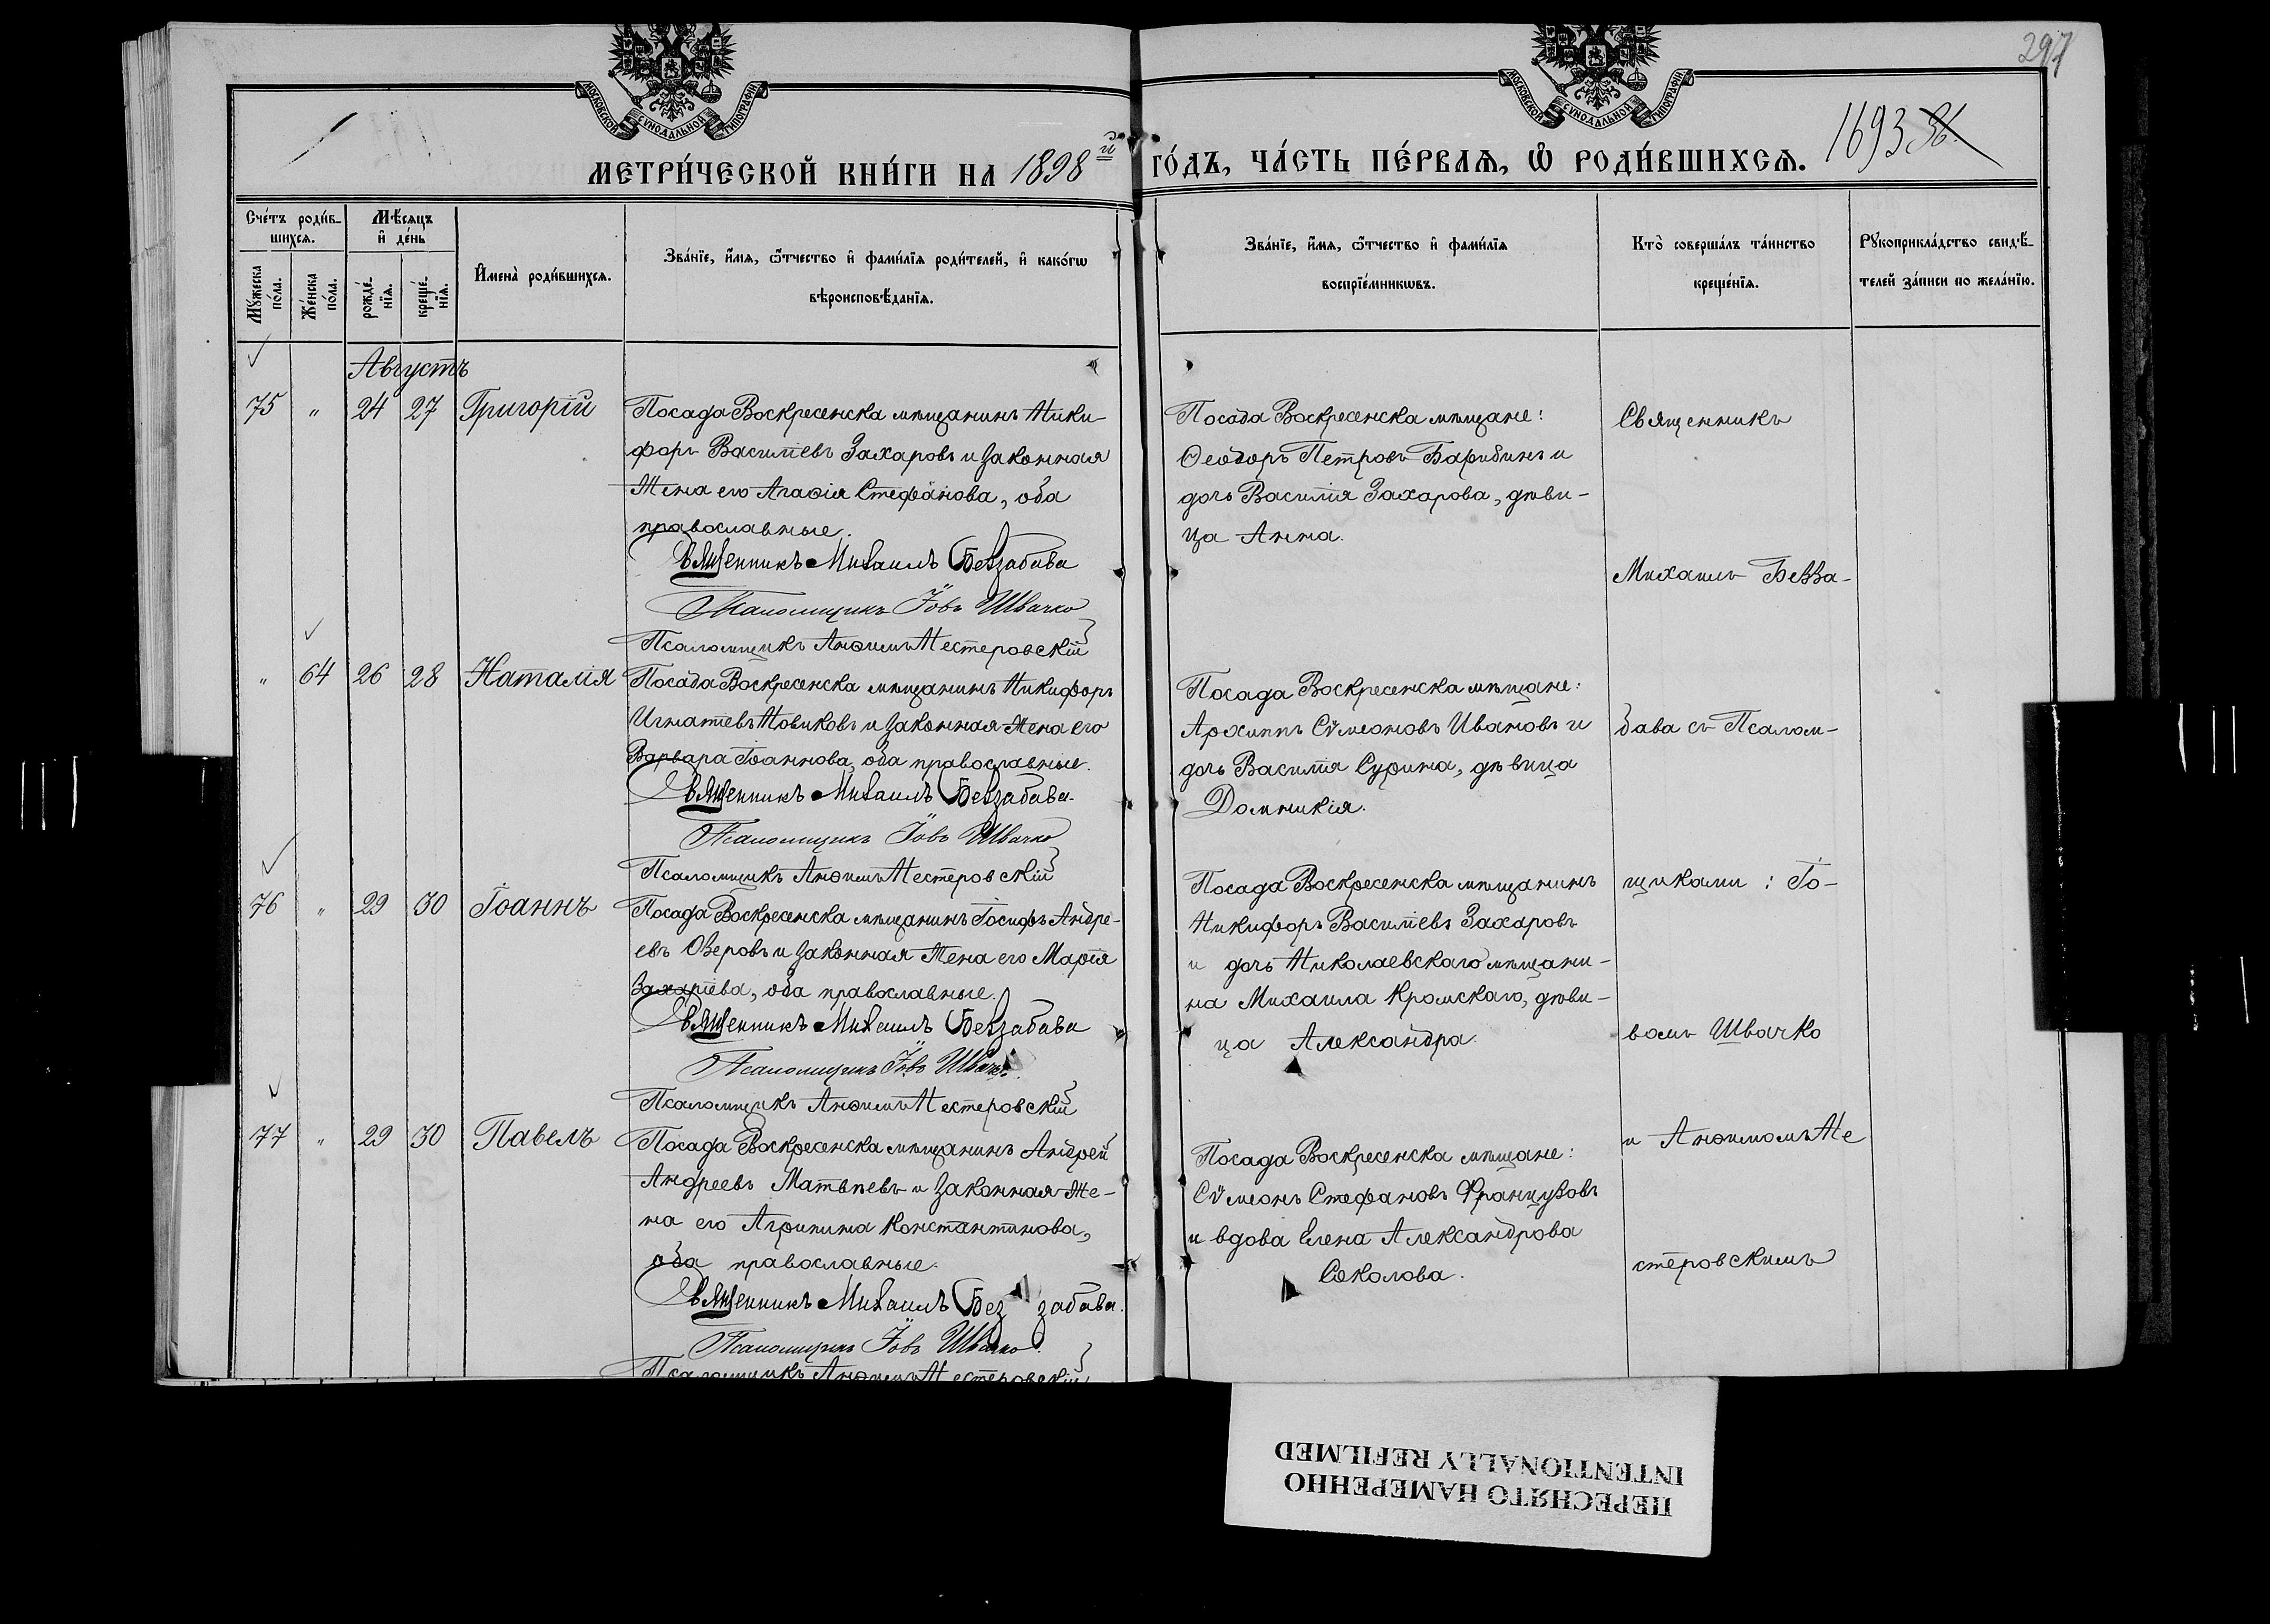 297
МОСКОВСКОЙ СѴНОДАЛЬНОЙ ТИПОГРАФІИ
МОСКОВСКОЙ СѴНОДАЛЬНОЙ ТИПОГРАФІИ
МЕТРИ́ЧЕСКОЙ КНИ́ГИ НА 1898й ГО́ДЪ, ЧА́СТЬ ПЕ́РВАѦ, Ѽ РОДИ́ВШИХСѦ. 1693 56.
Сче́тъ роди́в-
шихсѧ.
Мꙋ́жеска по́ла.
Же́нска по́ла.
Мѣ́сѧцъ и҆ де́нь
рожде́-
нїѧ.
креще́-
нїѧ.
И҆мена̀ роди́вшихсѧ.
Зва́нїе, и҆́мѧ, ѻ҆́тчество и҆ фами́лїѧ роди́телей, и҆ како́гѡ
вѣроисповѣ́данїѧ.
Зва́нїе, и҆́мѧ, ѻ҆́тчество и҆ фами́лїѧ
воспрїе́мникѡвъ.
Кто̀ соверша́лъ та́инство
креще́нїѧ.
Рꙋкоприкла́дство свидѣ́-
телей за́писи по жела́нїю.
Августъ
75 " 24 27 Григорій
Посада Воскресенска мѣщанинъ Ники-
форъ Василіевъ Захаровъ и законная
жена его Агаѳія Стефанова, оба
православные.
Священникъ Михаилъ Беззабава
Псаломщикъ Іовъ Швачко
Псаломщикъ Анѳимъ Нестеровскій
Посада Воскресенска мѣщане:
Ѳеодоръ Петровъ Барыбинъ и
дочь Василія Захарова, дѣви-
ца Анна.
" 64 26 28 Наталія
Посада Воскресенска мѣщанинъ Никифоръ
Игнатіевъ Новиковъ и законная жена его
Варвара Іоаннова, оба православные.
Священникъ Михаилъ Беззабава.
Псаломщикъ Іовъ Швачко
Псаломщикъ Анѳимъ Нестеровскій
Посада Воскресенска мѣщане:
Архиппъ Сѵмеоновъ Ивановъ и
дочь Василія Сурина, дѣвица
Домникія.
76 " 29 30 Іоаннъ
Посада Воскресенска мѣщанинъ Іосифъ Андре-
евъ Озеровъ и законная жена его Марія
Захаріева, оба православные.
Священникъ Михаилъ Беззабава
Псаломщикъ Іовъ Швачко.
Псаломщикъ Анѳимъ Нестеровскій
Посада Воскресенска мѣщанинъ
Никифоръ Василіевъ Захаровъ
и дочь Николаевскаго мѣщани-
на Михаила Кромскаго, дѣви-
ца Александра.
77 " 29 30 Павелъ
Посада Воскресенска мѣщанинъ Андрей
Андреевъ Матвѣевъ и законная же-
на его Агрипина Константинова,
оба православные.
Священникъ Михаилъ Беззабава.
Псаломщикъ Іовъ Швачко.
Псаломщикъ Анѳимъ Нестеровскій
Посада Воскресенска мѣщане:
Сѵмеонъ Стефановъ Французовъ
и вдова Елена Александрова
Соколова.
Священникъ
Михаилъ Безза-
бава съ Псалом-
щиками: Іо-
вомъ Швачко
и Анѳимомъ Не
стеровскимъ
ПЕРЕСНЯТО НАМЕРЕННО
INTENTIONALLY REFILMED